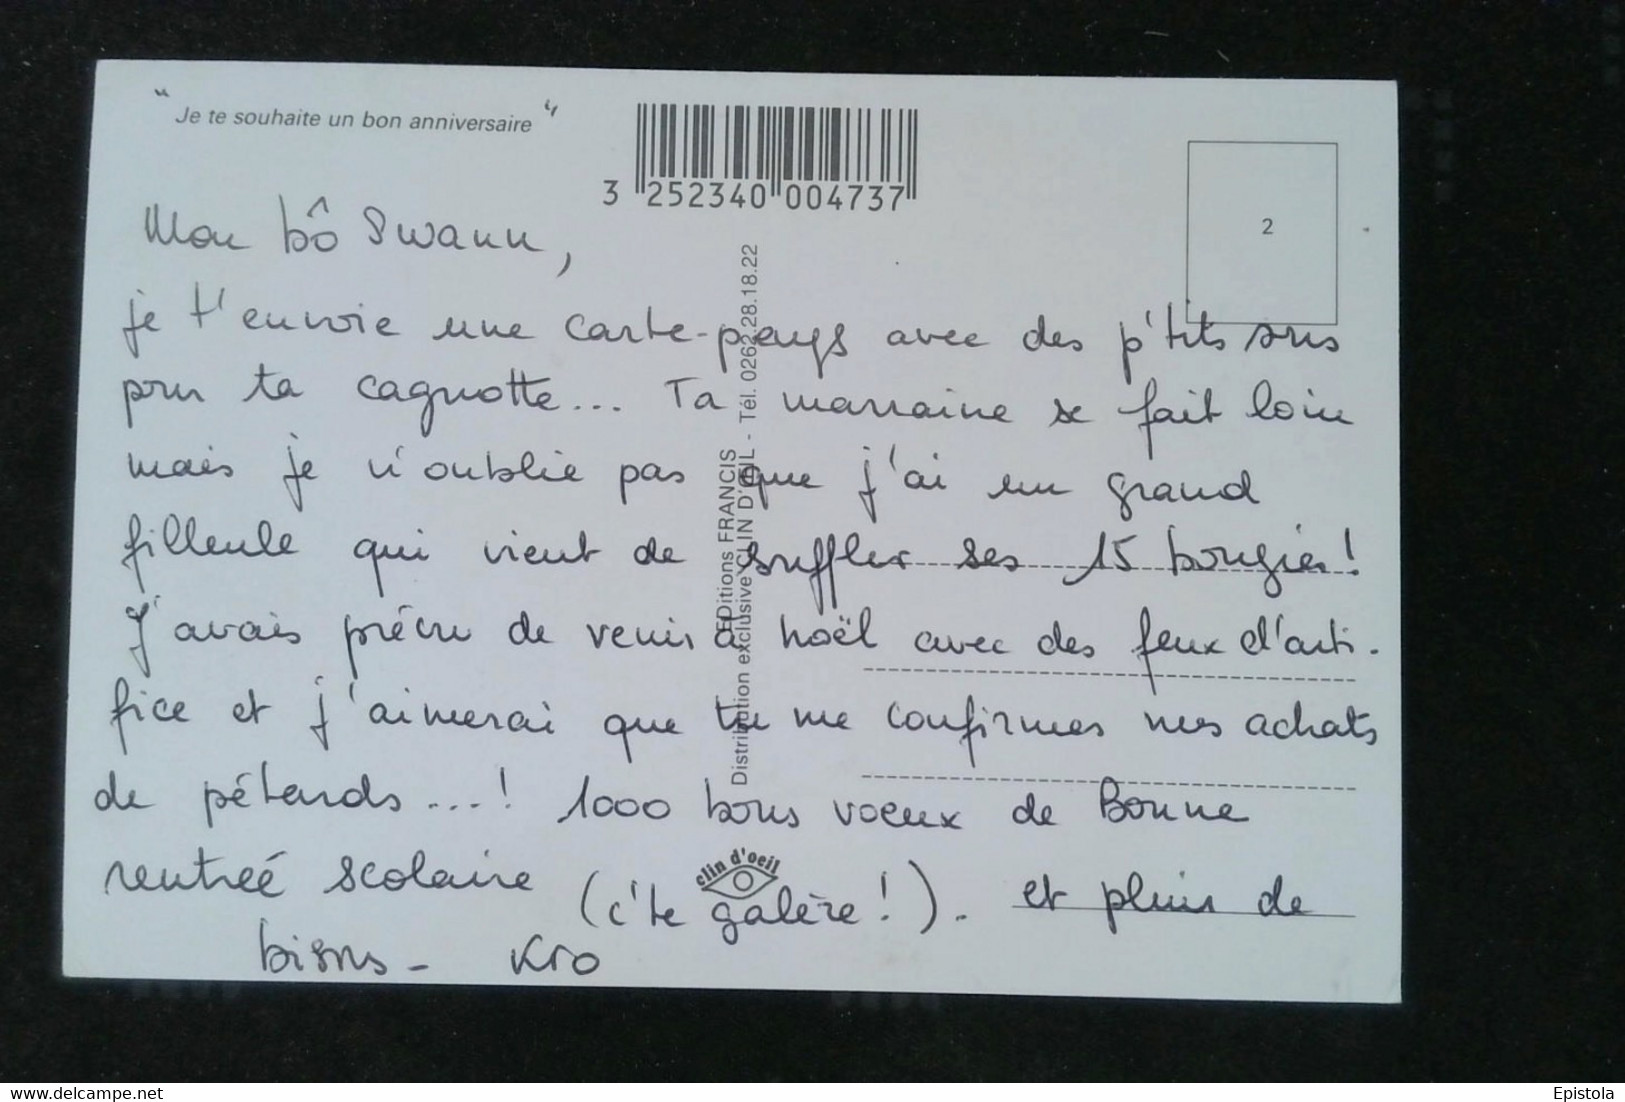 " Je te souhaite un bon anniversaire "
3 252340 004737
2
Mon bô Swann,
je t'envoie une carte-pays avec des p'tits sous
pour ta cagnotte... Ta marraine se fait loin
mais je n'oublie pas que j'ai un grand
filleule qui vient de souffler ses 15 bougies !
J'avais prévu de venir à noël avec des feux d'arti-
fice et j'aimerai que tu me confirmes mes achats
de pétards ...! 1000 bons voeux de Bonne
rentreé scolaire (c'te galère !). et pleins de
bisous - Kro
EDitions FRANCIS
Distribution exclusive CLIN D'ŒIL - Tél. 0262.28.18.22
clin d'oeil
Epistola